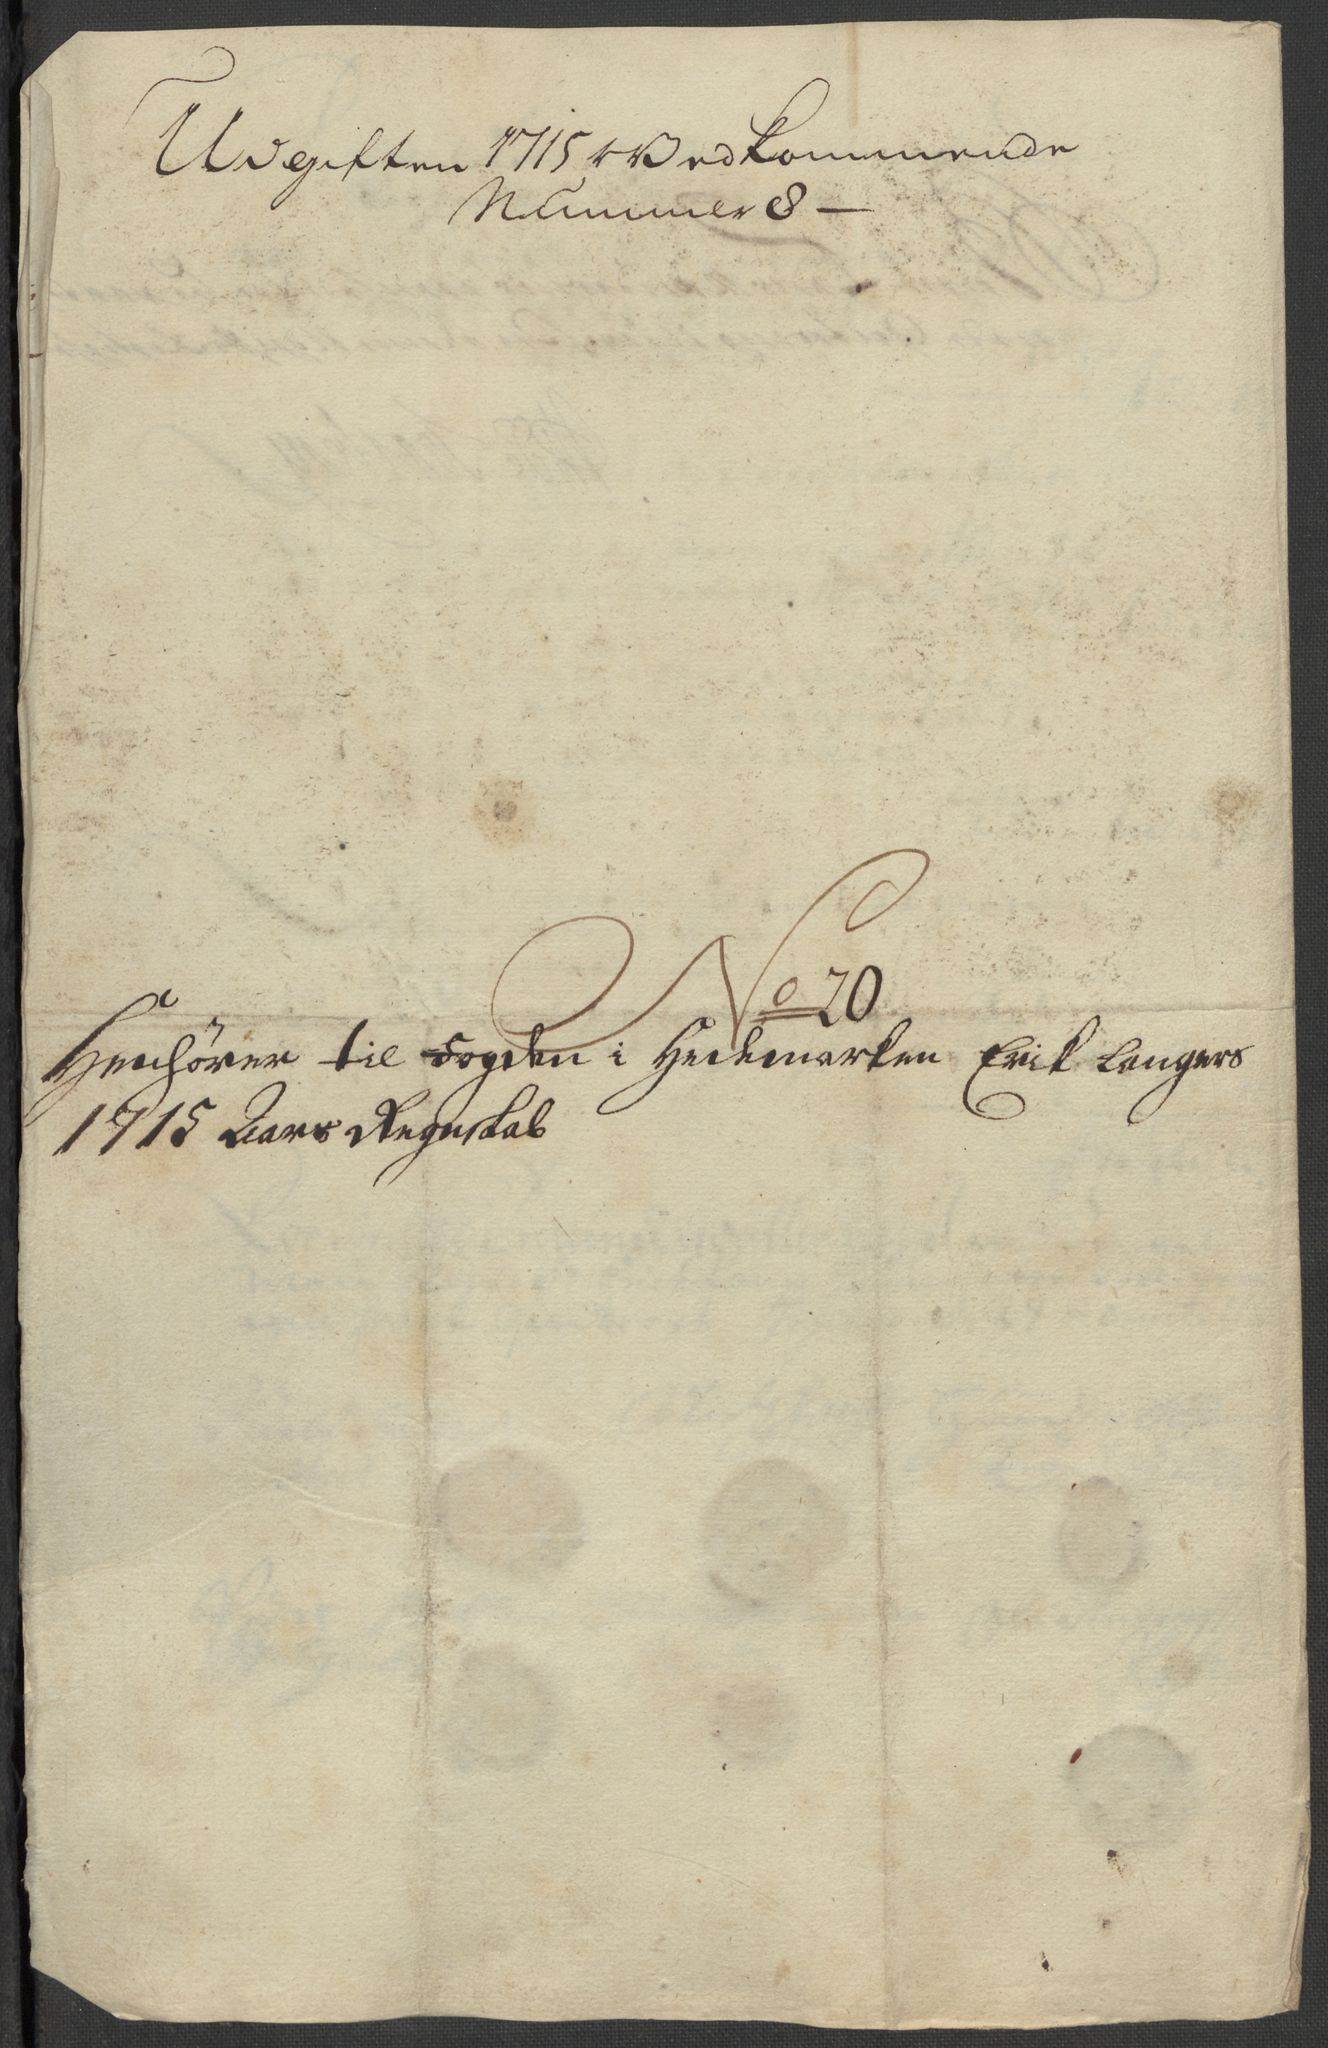 Udgiften 1715 Vedkommende
Nummer 8 —
No 20
Henhörer til Fogden i Hedemarken Erik Langers
1715 Aars Regnskab